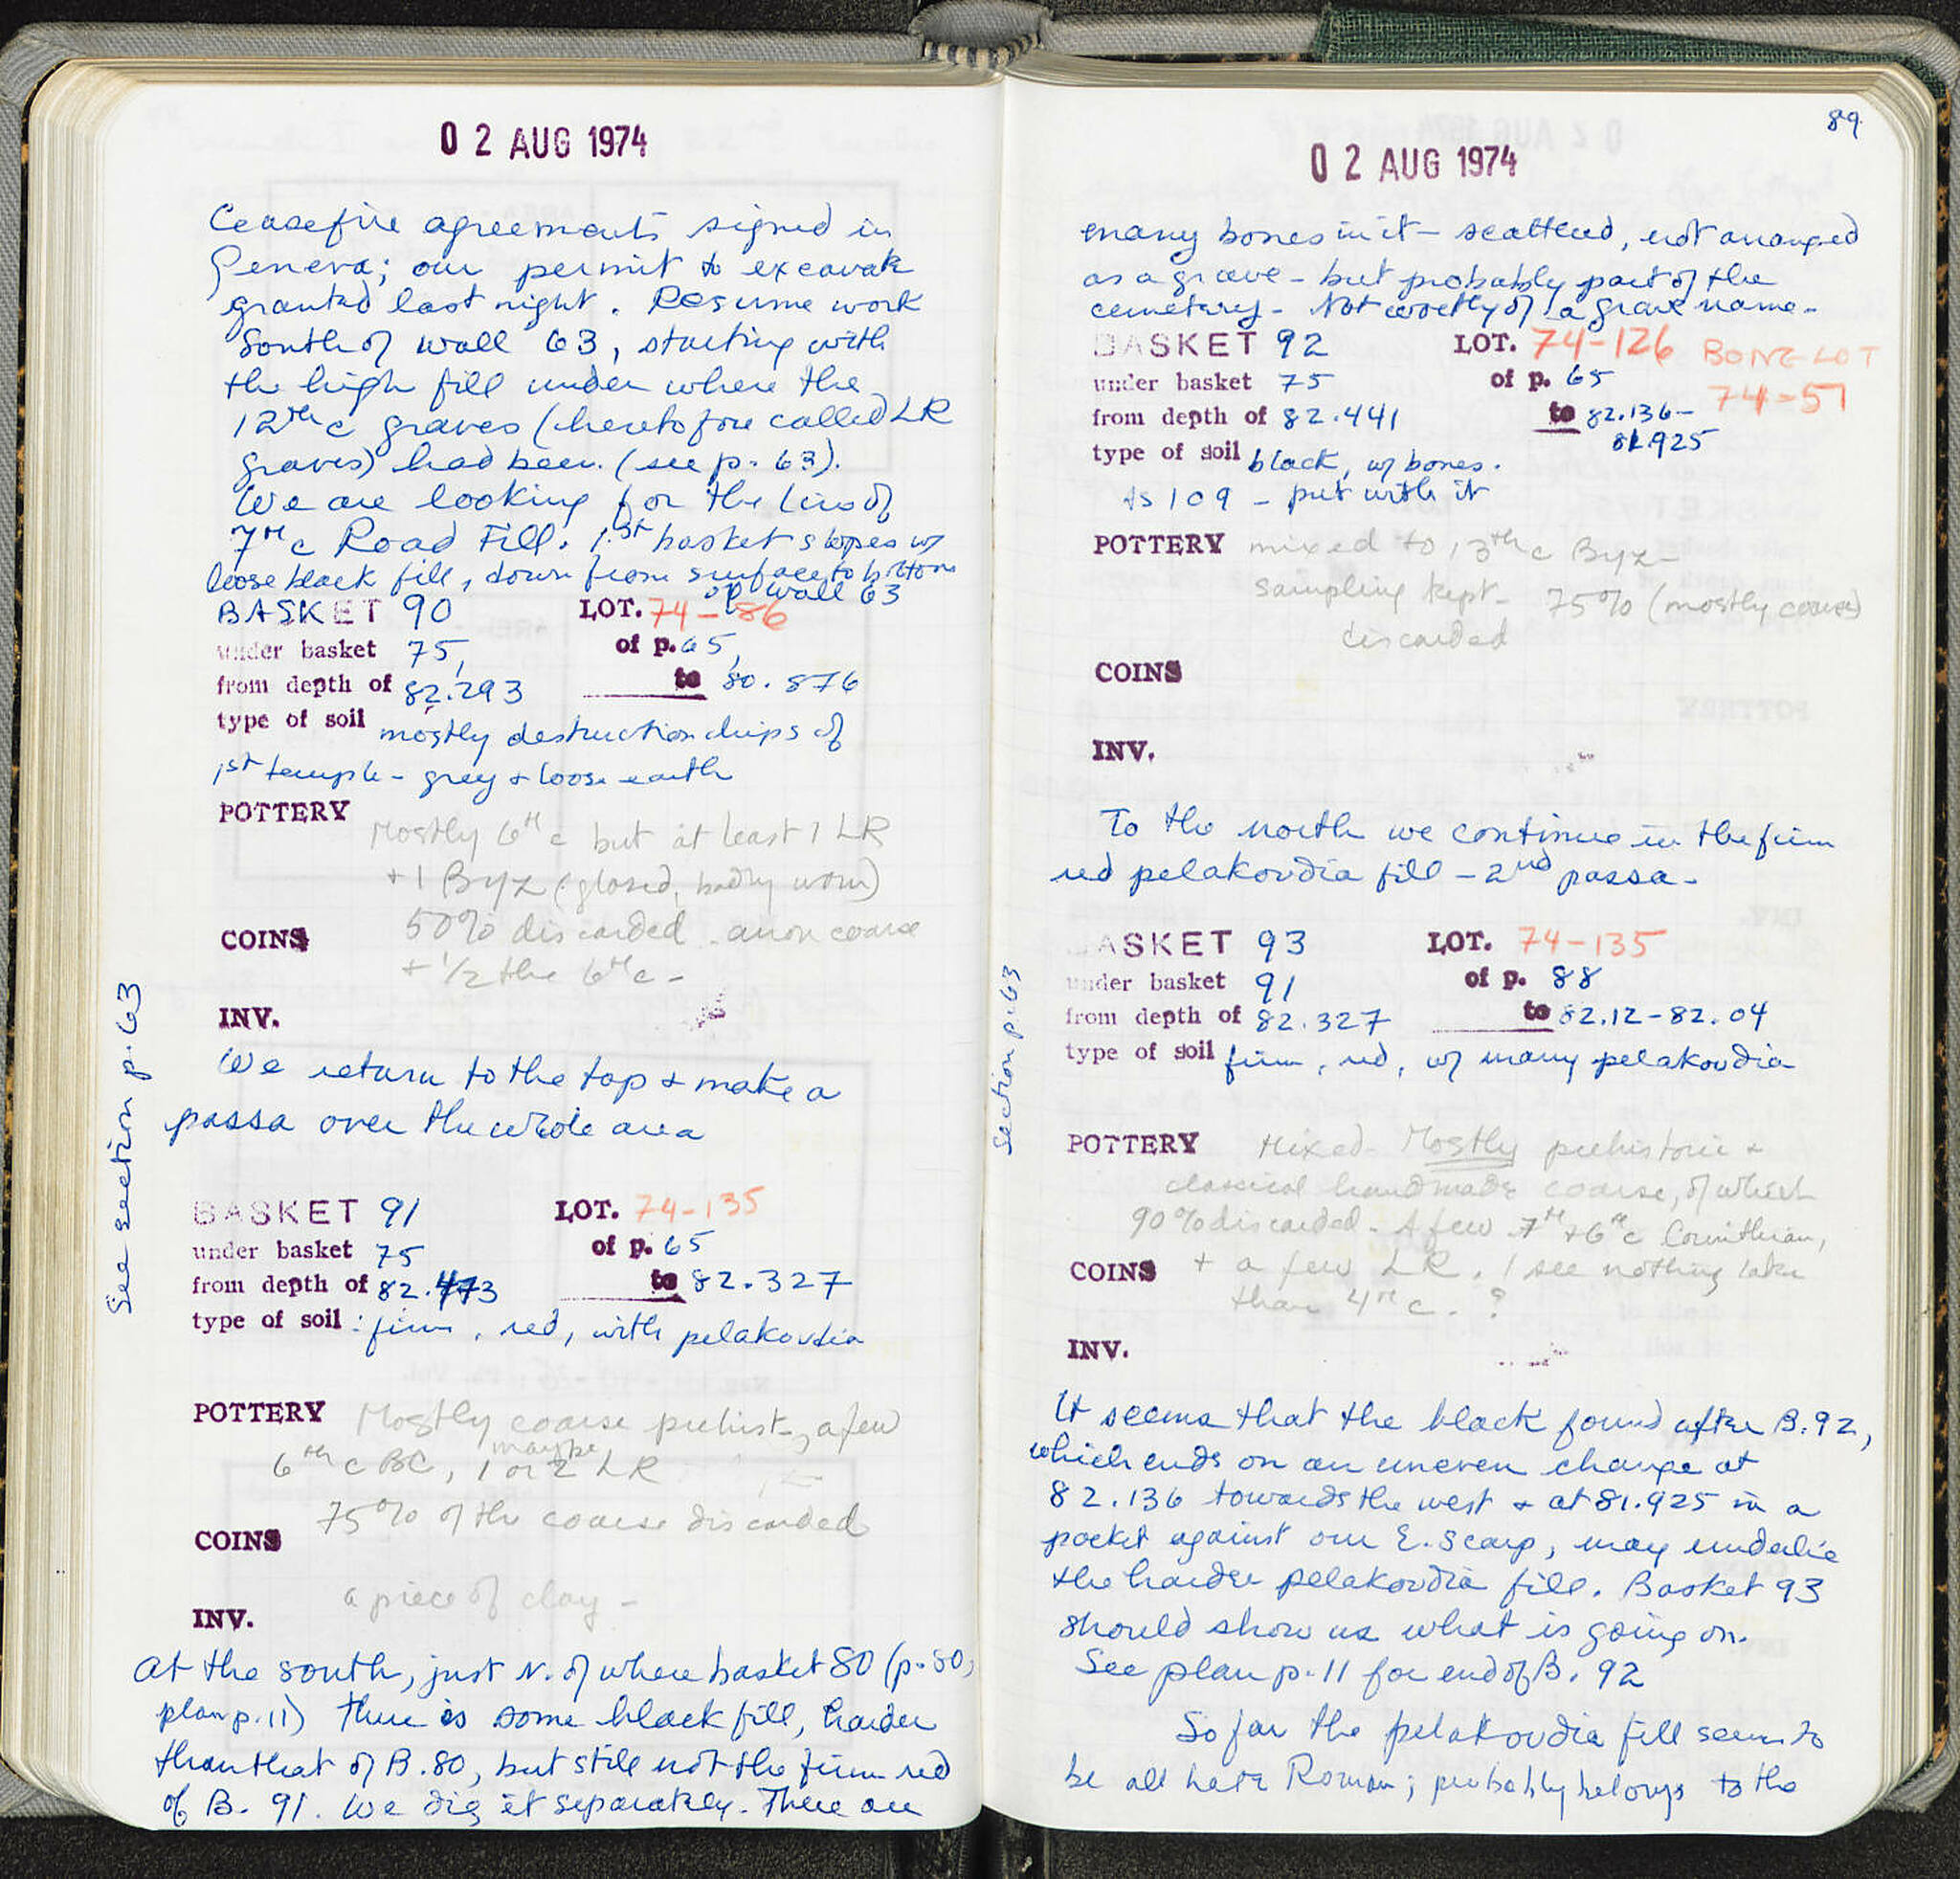 02 AUG 1974
Ceasefire agreements signed in
Geneva; our permit to excavate
granted last night. Resume work
South of wall 63, starting with
the high fill under where the
12th c graves (heretofore called LR
graves) had been. (see p. 63).
We are looking for the line of
7th c Road Fill. 1st basket slopes w/
loose black fill, down from surface to bottom
of wall 63
BASKET 90 LOT. 74-86
under basket 75, of p. 65,
from depth of 82.293 to 80.876
type of soil mostly destruction chips of
1st temple - grey & loose earth
POTTERY Mostly 6th c but at least 1 LR
+ 1 Byz (glased, badly worn)
50% discarded - anon coarse
COINS
+ 1/2 the 6th c -
INV.
We return to the top & make a
passa over the whole area
See section p. 63
BASKET 91 LOT. 74-135
under basket 75 of p. 65
from depth of 82.473 to 82.327
type of soil : firm, red, with pelakoudia
POTTERY Mostly coarse prehist-, a few
6th c BC, 1 or maybe 2 LR
75% of the coarse discarded
COINS
a piece of clay -
INV.
At the south, just N. of where basket 80 (p. 80,
plan p. 11) there is some black fill, harder
than that of B. 80, but still not the firm red
of B. 91. We dig it separately. There are
89
02 AUG 1974
many bones in it - scattered, not arranged
as a grave - but probably part of the
cemetery - Not worthy of a grave name -
BASKET 92 LOT. 74-126 BONE LOT
under basket 75 of p. 65 74-51
from depth of 82.441 to 82.136-
81.925
type of soil black, w/ bones.
As 109 - put with it
POTTERY mixed to 13th c Byz -
sampling kept - 75% (mostly coarse)
discarded
COINS
INV.
To the north we continue in the firm
red pelakoudia fill - 2nd passa -
BASKET 93 LOT. 74-135
under basket 91 of p. 88
from depth of 82.327 to 82.12-82.04
type of soil firm, red, w/ many pelakoudia
Section p. 63
POTTERY Mixed. Mostly prehistoric &
classical handmade coarse, of which
90% discarded - A few 7th & 6th c Corinthian,
COINS + a few LR. I see nothing later
than 4th c. ?
INV.
It seems that the black found after B. 92,
which ends on an uneven change at
82.136 towards the west & at 81.925 in a
pocket against our E. Scarp, may underlie
the harder pelakoudia fill. Basket 93
should show us what is going on.
See plan p. 11 for end of B. 92
So far the pelakoudia fill seems to
be all Late Roman; probably belongs to the